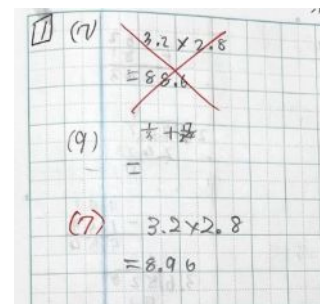 1 (7) 3.2×2.8
=88.6
(9)
=
(7) 3.2×2.8
=8.96